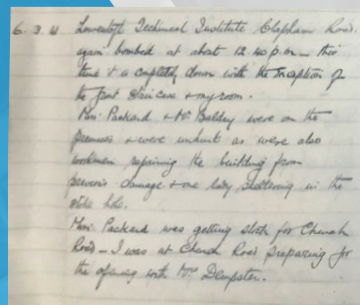 6. 3. 41 Lowestoft Technical Institute Clapham Road.
again bombed at about 12.40 p.m — this
time & is completely down with the exception of
the front staircase & my room.
Miss Packard & Mr Baldry were on the
premises & were unhurt as were also
workmen repairing the building from
previous damage & one lady sheltering in the
Miss Packard was getting stock for Church
Road — I was at Church Road preparing for
the opening with Mrs Dempster.